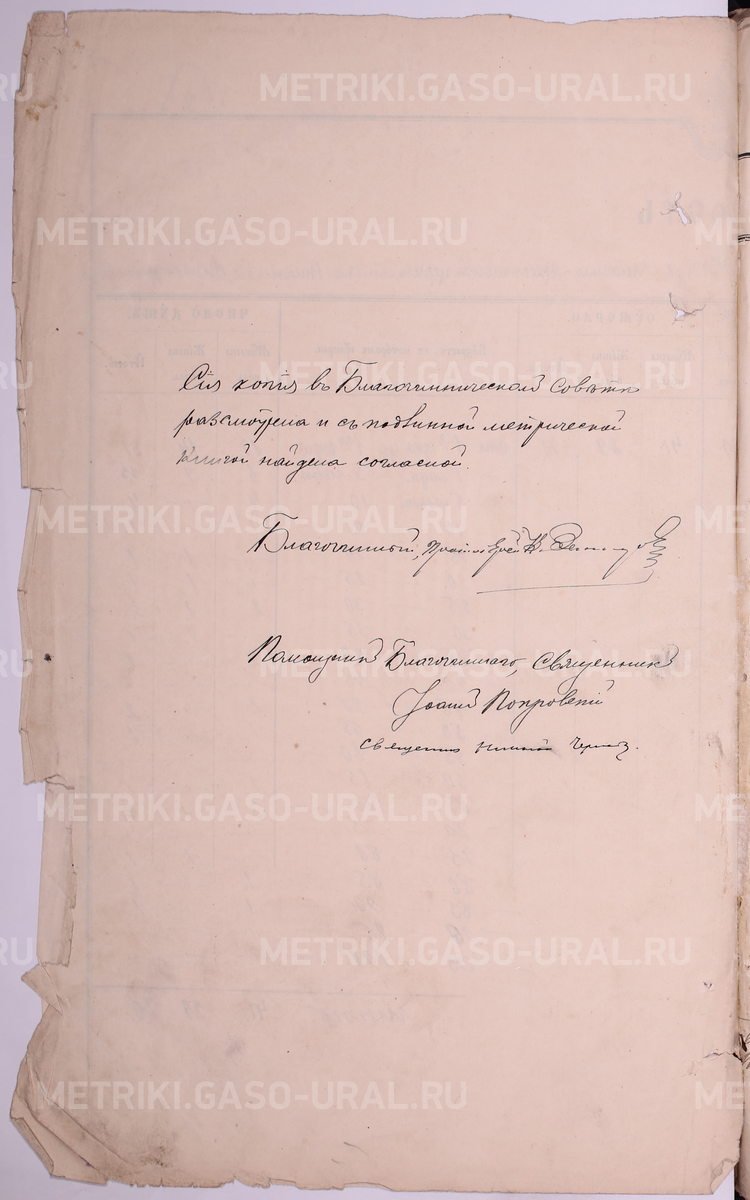 METRIKI.GASO-URAL.RU
METRIKI.GASO-URAL.RU
Сія копія въ Благочинническомъ совѣтѣ
разсмотрена и съ подлинной метрической
книгой найдена согласной.
METRIKI.GASO-URAL.RU
Благочинный, Протоіерей
Помощникъ Благочиннаго, Священникъ
METRIKI.GASO-URAL.RU
Іоаннъ Покровскій
Священникъ
METRIKI.GASO-URAL.RU
METRIKI.GASO-URAL.RU
METRIKI.GASO-URAL.RU